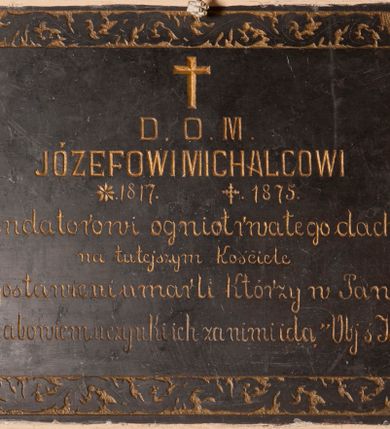 D. O. M.
JÓZEFOWI MICHALCOWI
*.1817. +. 1875.
ndatorowi ogniotrwałego dac
na tutejszym Kościele
ostawieni umarli Którzy w Pan
abowiem uczynki ich za nimi idą," Obj ś J